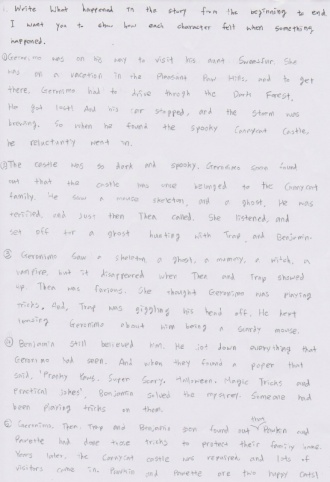 1. Write What happened in the story from the beginning to end
I want you to show how each character felt when something
happened.
① Geronimo was on his way to visit his aunt Sweetfur. She
was on a vacation in the Pleasant Paw Hills, and to get
there, Geronimo had to drive though the Dark Forest,
He got lost! And his car stopped, and the storm was
brewing. So when he found the spooky Cannycat Castle,
he reluctantly went in.
② The castle was so dark and spooky. Geronimo soon found
out that the castle has once belonged to the Cannycat
family. He saw a mouse skeleton, and a ghost. He was
terrified, and just then Thea called. She listened, and
set off for a ghost hunting with Trap, and Benjamin.
③ Geronimo saw a skeleton, a ghost, a mommy, a witch, a
vampire, but it disappeared when Thea and Trap showed
up. Thea was furious. She thought Geronimo was playing
tricks. And, Trap was giggling his head off. He kept
teasing Geronimo about him being a scardy mouse.
④ Benjamin still believed him. He jot down everything that
Geronimo had seen. And when they found a paper that
said, 'Peachy Bugs, Super Scary, Halloween, Magic Tricks and
Practical Jokes', Benjamin solved the mystery. Someone had
been playing tricks on them.
⑤ Geronimo, Thea, Trap and Benjamin soon found out that
had done those tricks to protect their family home.
Years later, the Cannycat castle was repaired, and lots of
visitors came in. and are two happy cats!